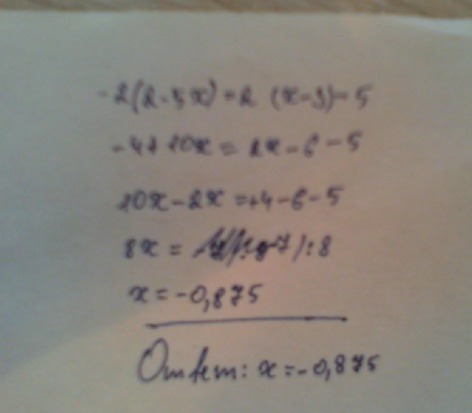 -2(2-5x)=2 (x-3)-5
-4+10x=2x-6-5
10x-2x=+4-6-5
8x= -7 |:8
x=-0,875
Ответ: x=-0,875